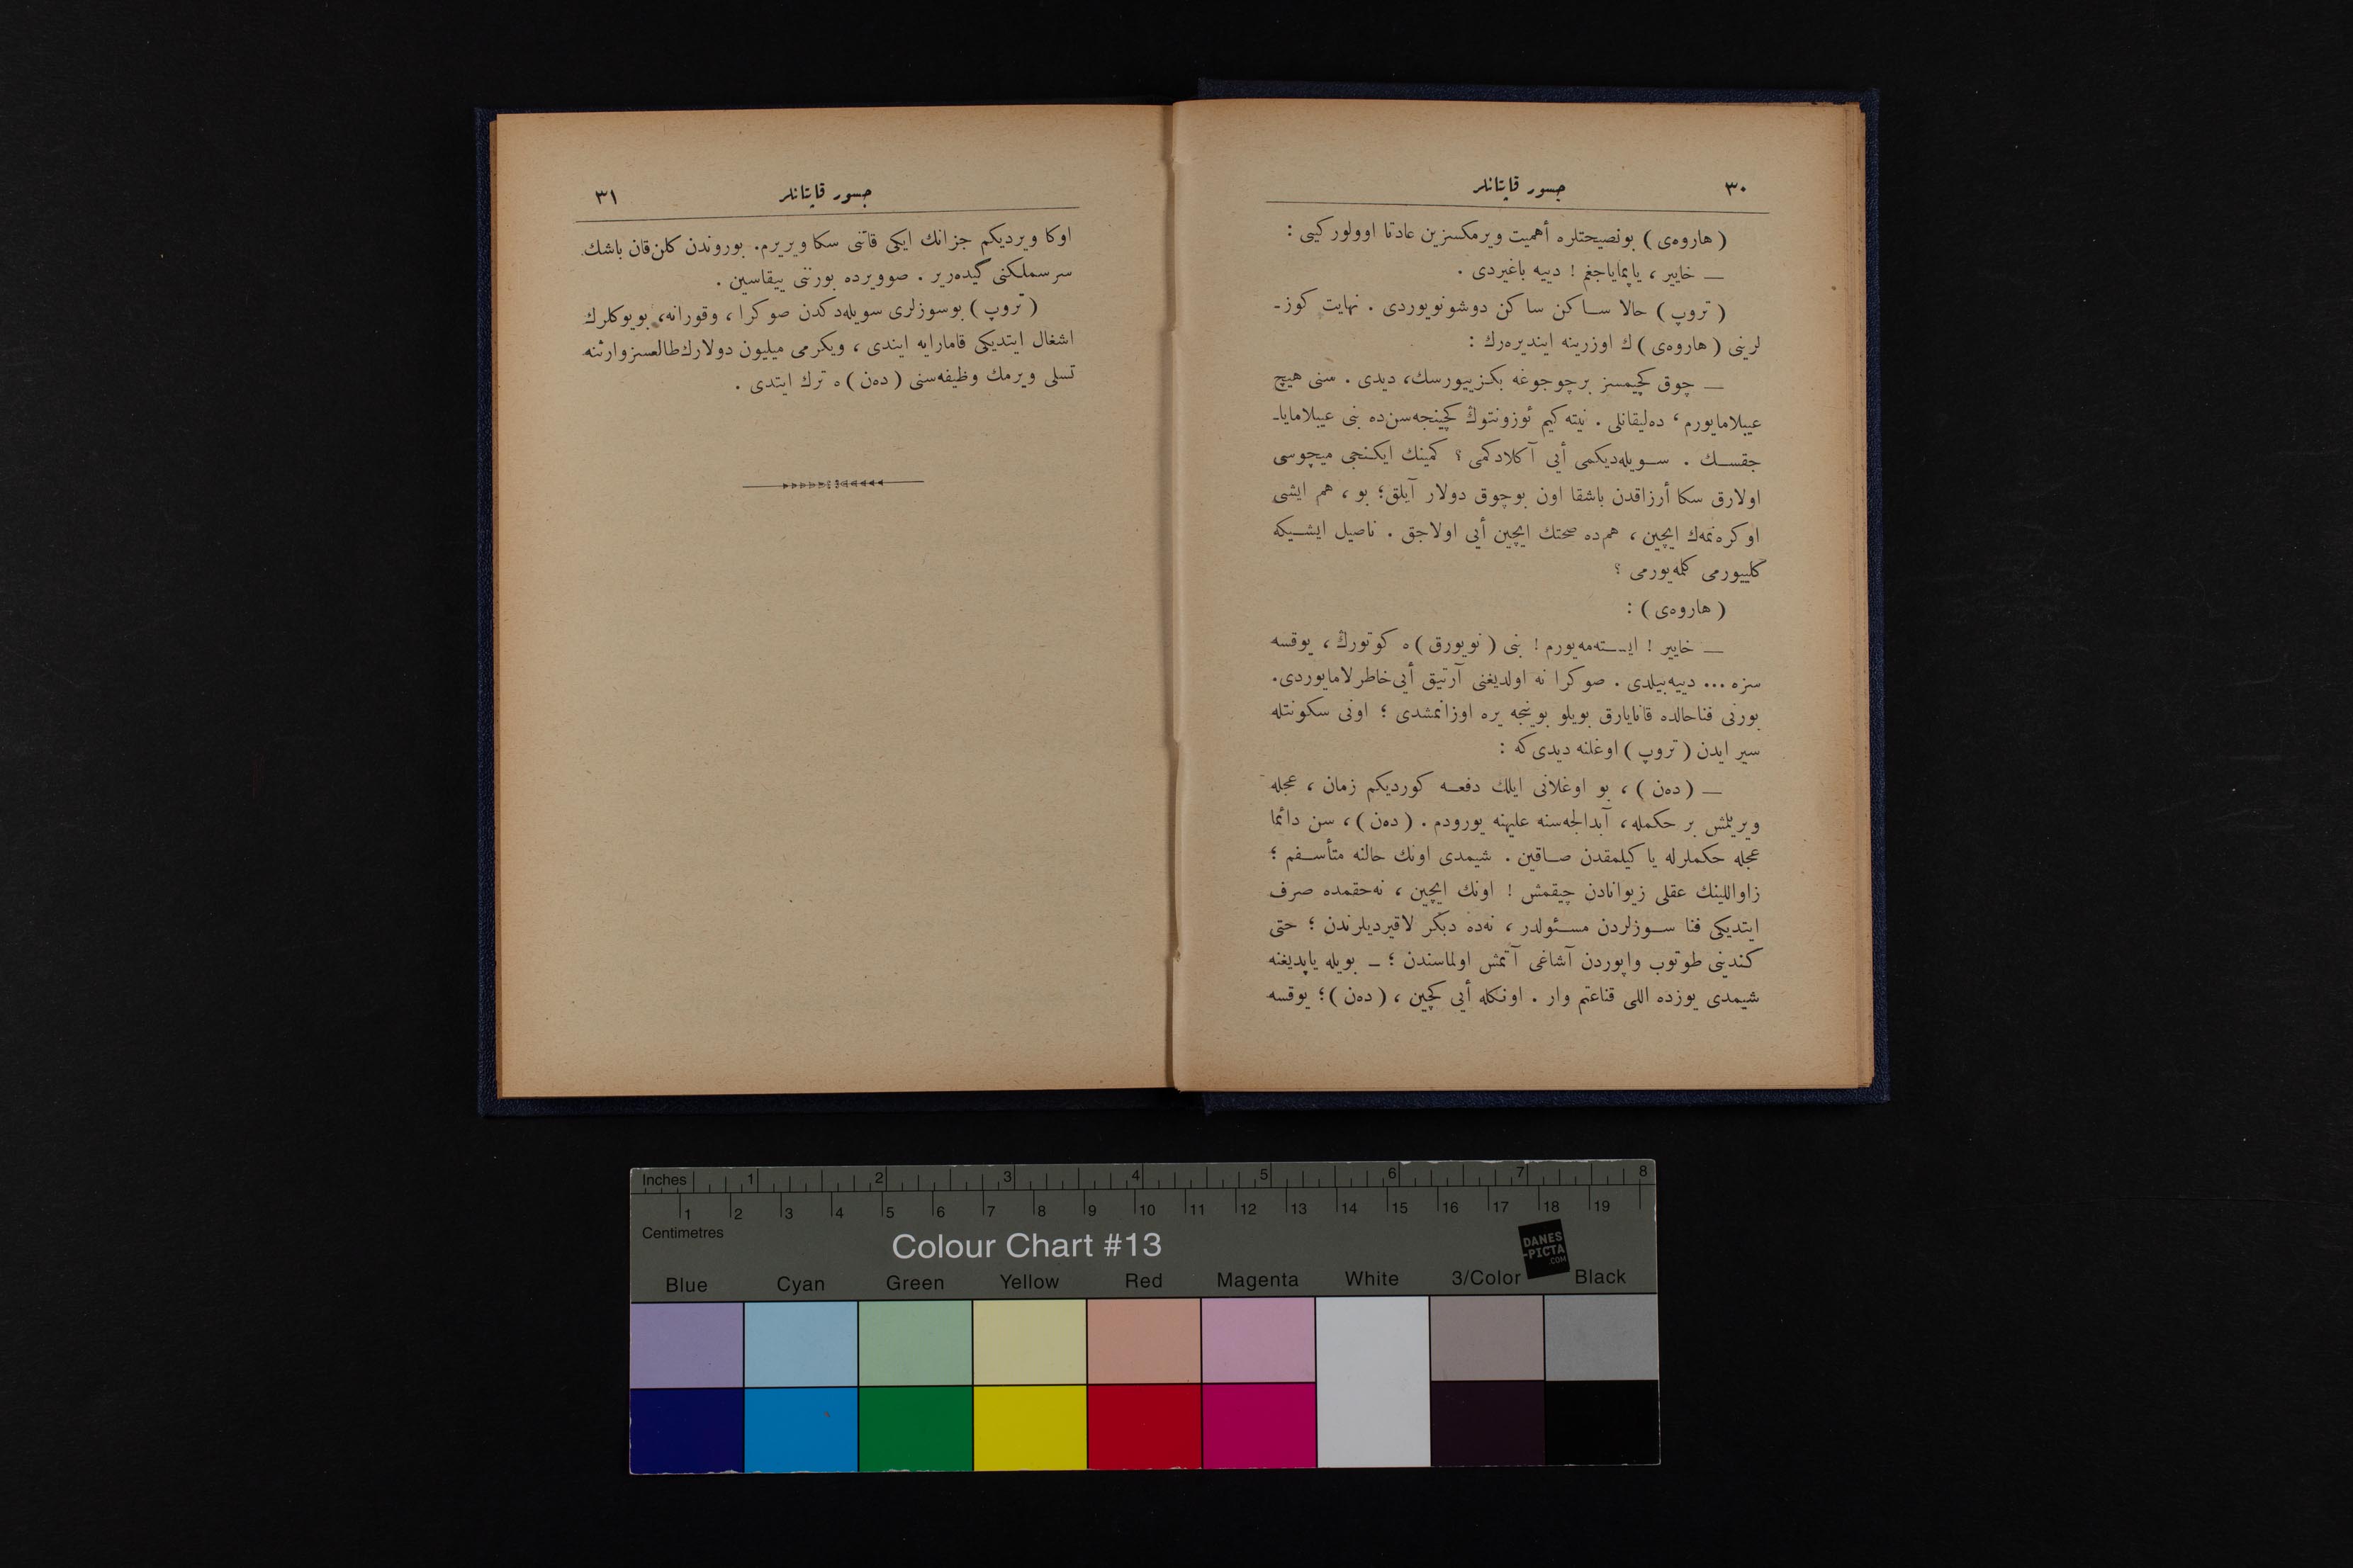 ٣٠
جسور قاپتانلر
( هاروه‌ی ) بونصیحتلره أهمیت ویرمکسزین عادتا اوولور کیبی :
— خاییر ، یاپمایاجغم ! دییه باغیردی .
( تروپ ) حالا ساکن ساکن دوشونویوردی . نهایت کوز-
لرینی ( هاروه‌ی ) ك اوزرینه ایندیره‌رك :
— چوق کچیمسز برچوجوغه بکزییورسك، دیدی . سنی هیچ
عیبلامایورم ، ده‌لیقانلی . نیته کیم ئوزونتوڭ کچینجه سن‌ده بنی عیبلامایا-
جقسك . سویله‌دیکمی أیی آکلادکمی ؟ کمینك ایکنجی میچوسی
اولارق سکا أرزاقدن باشقا اون بوچوق دولار آیلق ؛ بو ، هم ایشی
اوکره‌نمه‌ك ایچین ، هم‌ده صحتك ایچین أیی اولاجق . ناصیل ایشیکه
گلییورمی گلمه‌یورمی ؟
( هاروه‌ی ) :
— خاییر ! ایسته‌مه‌یورم ! بنی ( نویورق ) ه کوتورڭ ، یوقسه
سزه ... دییه‌بیلدی . صوکرا نه اولدیغنی آرتیق أیی خاطرلامایوردی.
بورنی فناحالده قانایارق بویلو بوینجه یره اوزانمشدی ؛ اونی سکونتله
سیر ایدن ( تروپ ) اوغلنه دیدی که :
— ( ده‌ن ) ، بو اوغلانی ایلك دفعه کوردیکم زمان ، عجله
ویریلمش بر حکمله ، آبدالجه‌سنه علیهنه یورودم . ( ده‌ن ) ، سن دائما
عجله حکملرله یاکیلمقدن صاقین . شیمدی اونك حالنه متأسفم ؛
زاواللینك عقلی زیوانادن چیقمش ! اونك ایچین ، نه‌حقمده صرف
ایتدیکی فنا سوزلردن مسئولدر ، نه‌ده دیکر لاقیردیلرندن ؛ حتی
کندینی طوتوب واپوردن آشاغی آتمش اولماسندن ؛ – بویله یاپدیغنه
شیمدی یوزده اللی قناعتم وار . اونکله أیی کچین ، ( ده‌ن ) ؛ یوقسه
٣١
جسور قاپتانلر
اوکا ویردیکم جزانك ایکی قاتنی سکا ویریرم. بوروندن کلن قان باشك
سرسملکنی گیده‌ریر . صوویرده بورننی ییقاسین .
( تروپ ) بوسوزلری سویله‌دکدن صوکرا ، وقورانه، بویوکلرك
اشغال ایتدیکی قامارایه ایندی ، ویکرمی میلیون دولارك طالعسزوارثنه
تسلی ویرمك وظیفه‌سنی ( ده‌ن ) ه ترك ایتدی .
Inches 1 2 3 4 5 6 7 8
1 2 3 4 5 6 7 8 9 10 11 12 13 14 15 16 17 18 19
Centimetres
Colour Chart #13
DANES
-PICTA
.COM
Blue Cyan Green Yellow Red Magenta White 3/Color Black